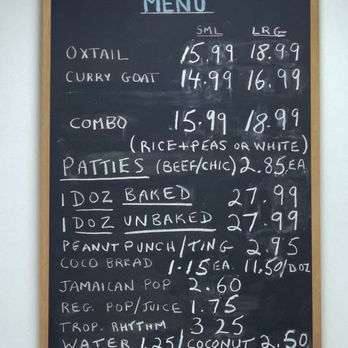 MENU
SML LRG
OXTAIL 15.99 18.99
CURRY GOAT 14.99 16.99
COMBO 15.99 18.99
(RICE+PEAS OR WHITE)
PATTIES (BEEF/CHIC) 2.85 EA
1 DOZ BAKED 27.99
1 DOZ UNBAKED 27.99
PEANUT PUNCH/TING 2.95
COCO BREAD 1.15 EA. 11.50/DOZ
JAMAICAN POP 2.60
REG. POP/JUICE 1.75
TROP. RHYTHM 3.25
WATER 1.25/COCONUT 2.50